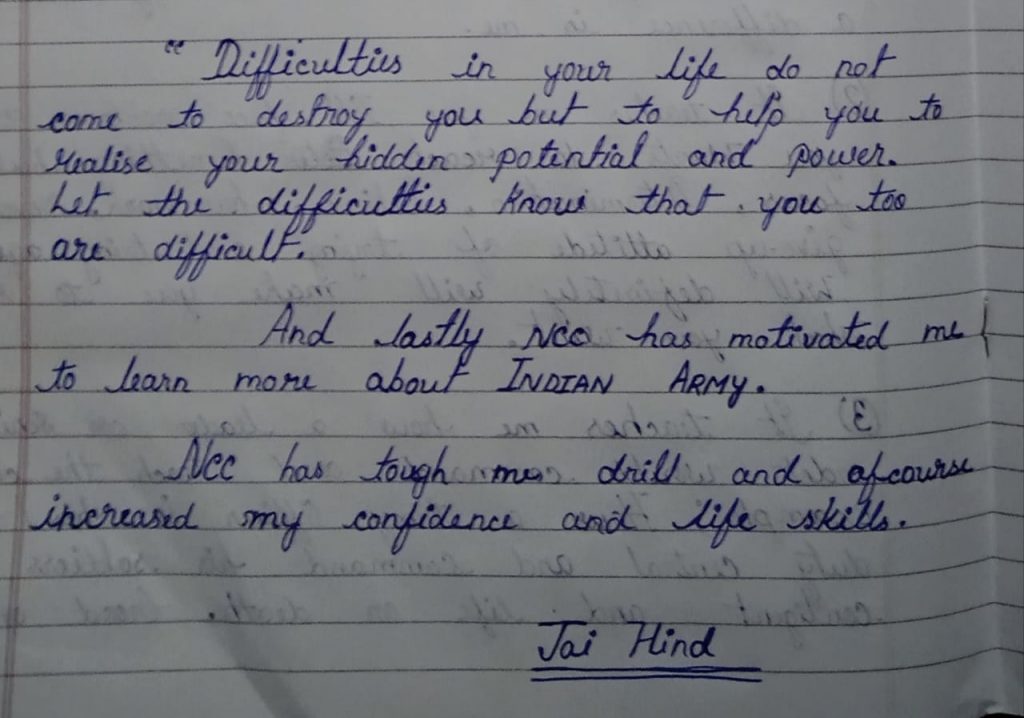 “ Difficulties in your life do not
come to destroy you but to help you to
realise your hidden potential and power.
Let the difficulties know that you too
are difficult.
And lastly NCC has motivated me
to learn more about INDIAN ARMY.
NCC has tough me drill and ofcourse
increased my confidence and life skills.
Jai Hind